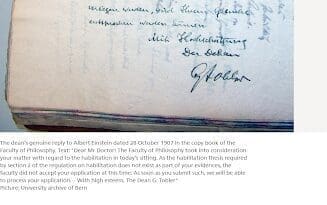 werden, wird Ihrem Gesuche
entsprochen werden können.
Mit Hochachtung
Der Dekan
G Tobler
The dean's genuine reply to Albert Einstein dated 28 October 1907 in the copy book of the
Faculty of Philosophy. Text: "Dear Mr. Doctor! The Faculty of Philosophy took into consideration
your matter with regard to the habilitation in today's sitting. As the habilitation thesis required
by section 2 of the regulation on habilitation does not exist as part of your evidences, the
faculty did not accept your application at this time. As soon as you submit such, we will be able
to process your application. - With high esteem, The Dean G. Tobler"
Picture, University archive of Bern